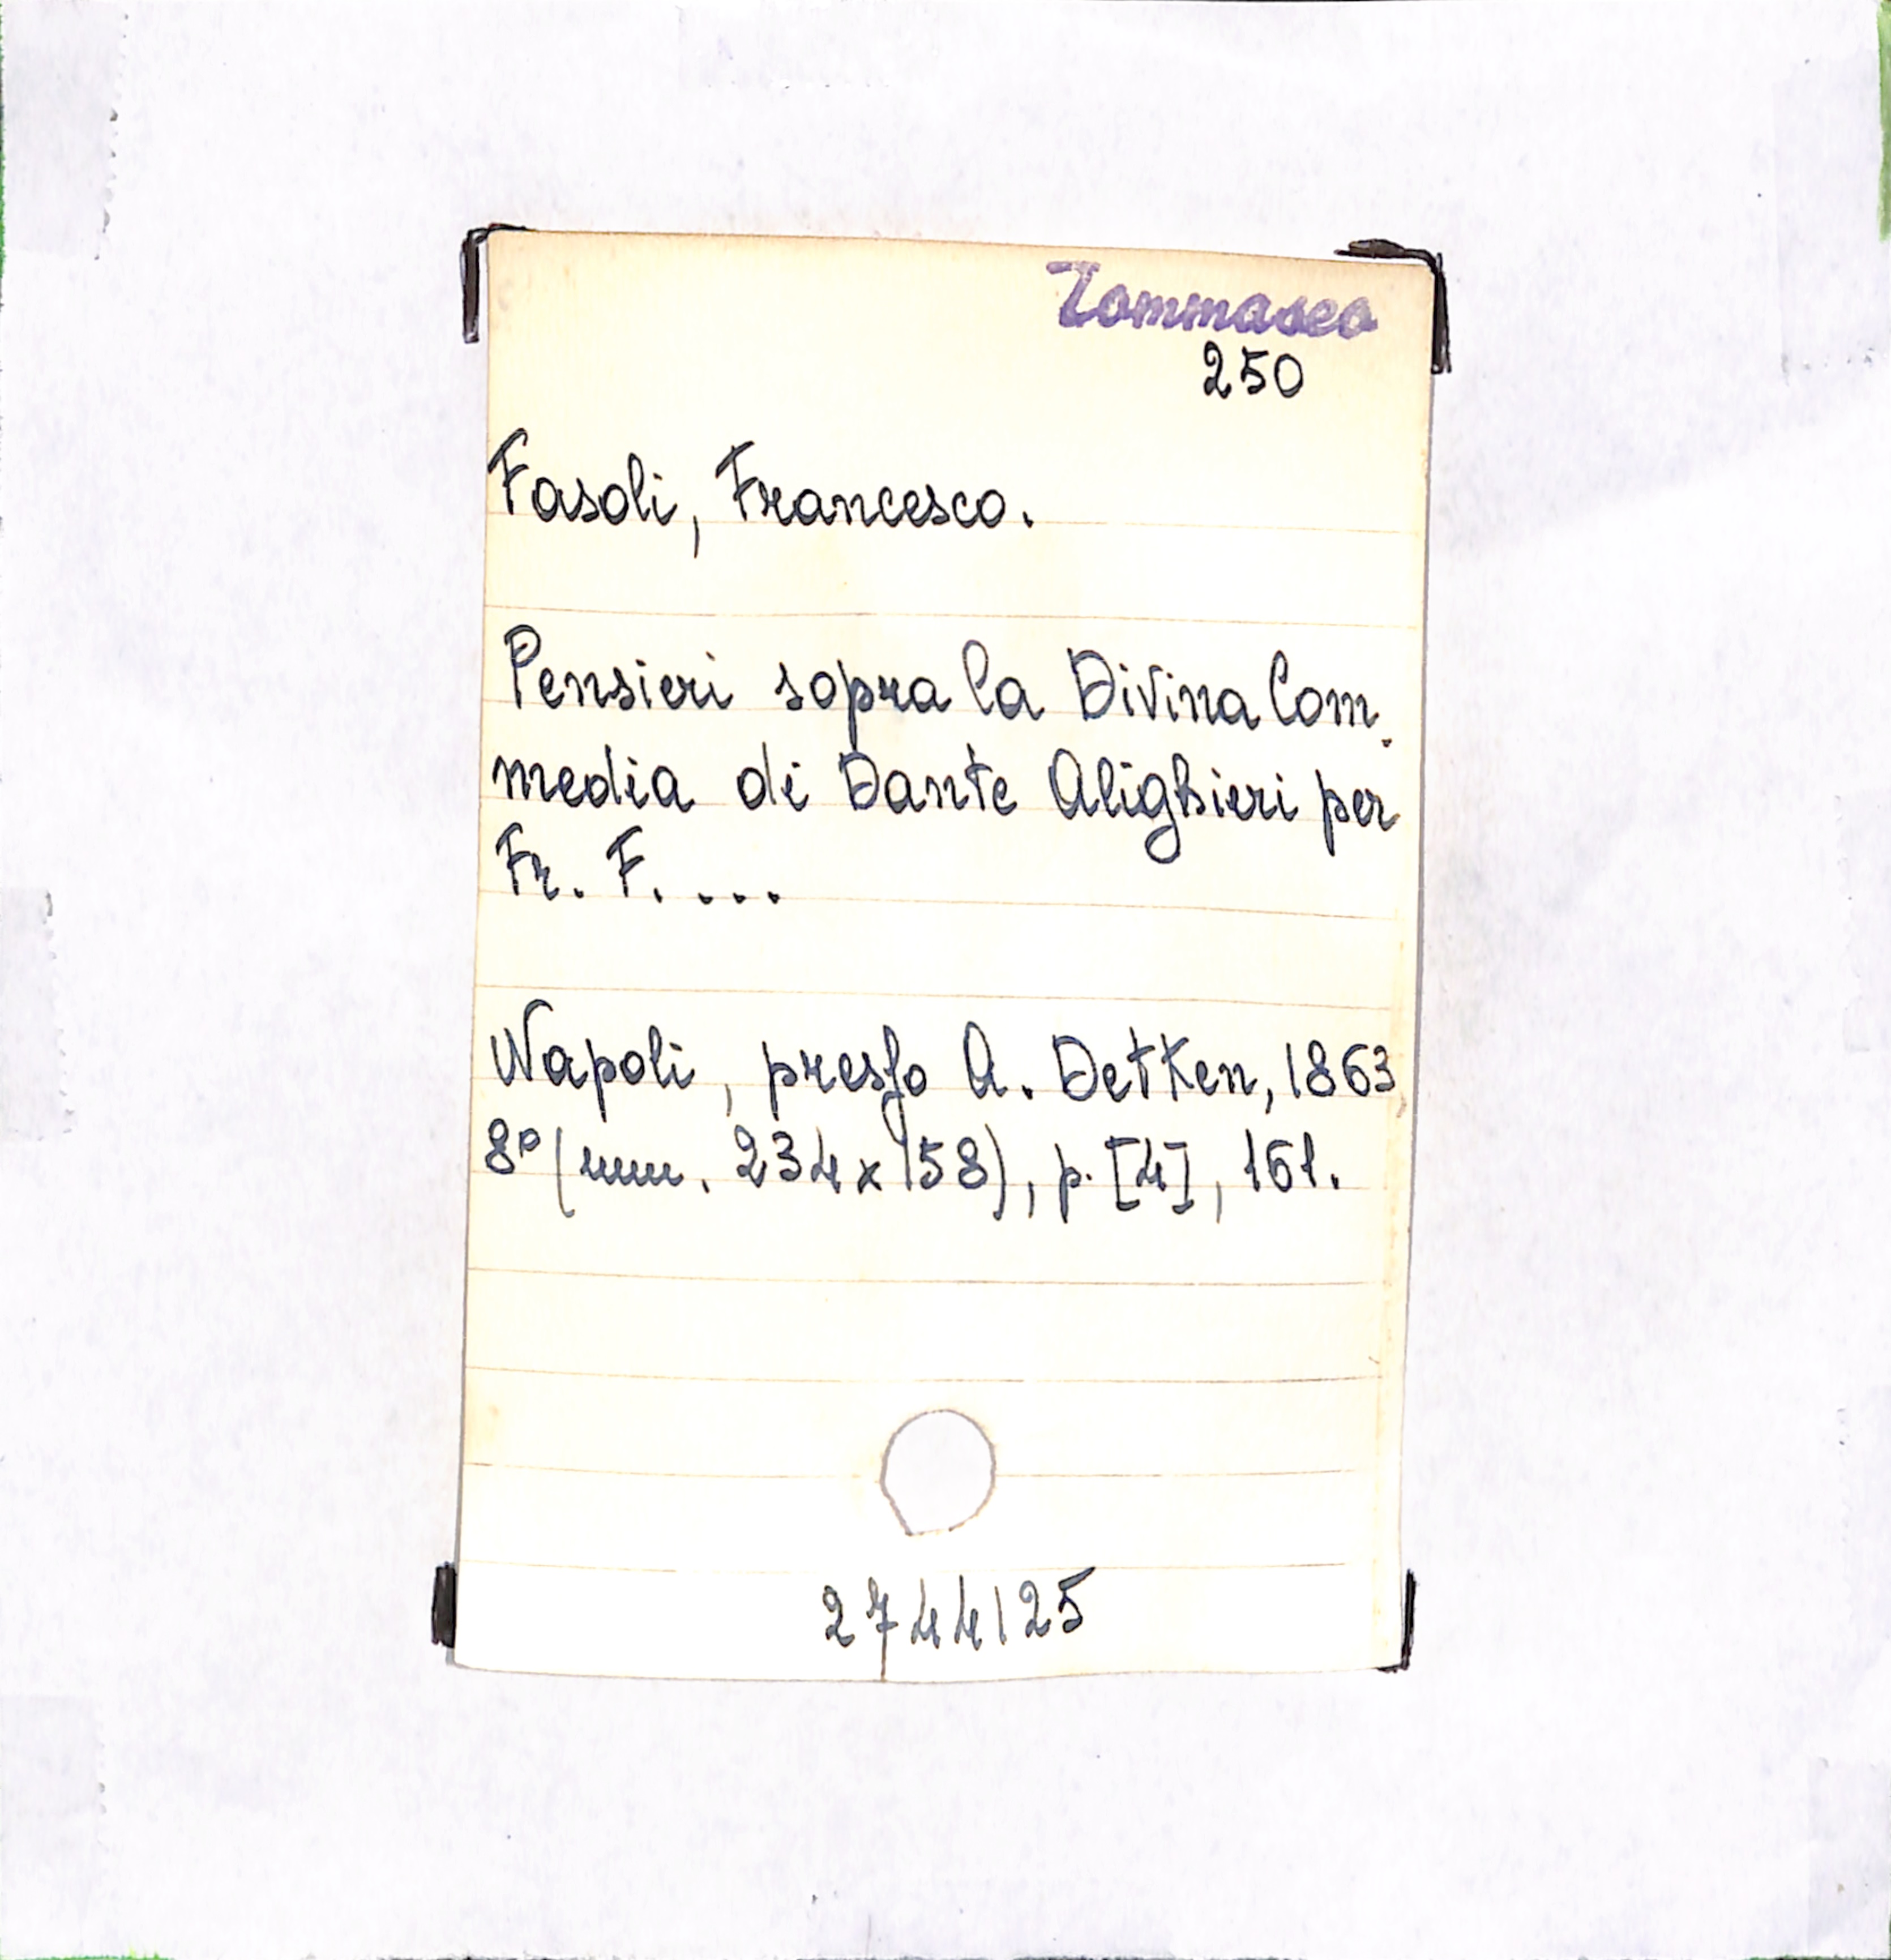 Tommaseo
250
Fasoli, Francesco.
Pensieri sopra la Divina Com.
media di Dante Alighieri per
Fr. F. ...
Napoli, presso A. Detken, 1863
8º (mm. 234x158), p. [4], 161.
2744125